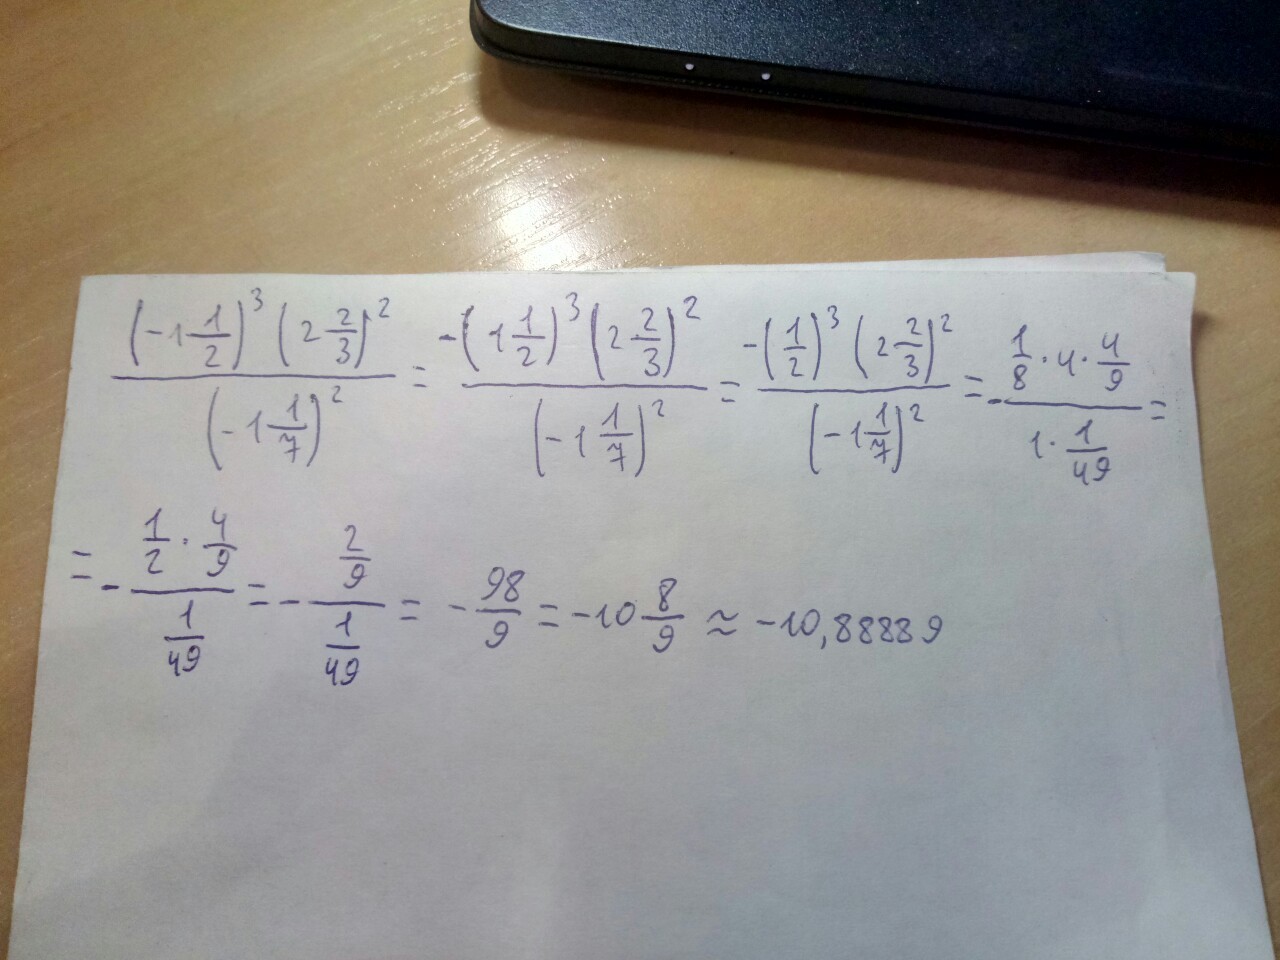 (-1 1/2)^3 (2 2/3)^2 / (-1 1/7)^2 = -(1 1/2)^3 (2 2/3)^2 / (-1 1/7)^2 = -(1/2)^3 (2 2/3)^2 / (-1 1/7)^2 = - (1/8 · 4 · 4/9) / (1 · 1/49) =
= - (1/2 · 4/9) / (1/49) = - (2/9) / (1/49) = - 98/9 = -10 8/9 ≈ -10,88889